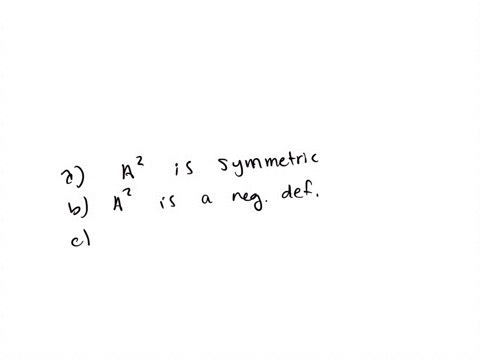 a) A² is symmetric
b) A² is a neg. def.
c)